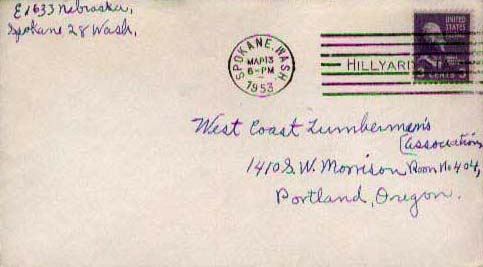 E1633 Nebraska,
Spokane 28 Wash,
SPOKANE, WASH
MAR 13
6-PM
1953
HILLYARD
UNITED
STATES
3 CENTS 3
West Coast Lumbermen's
(Association
1410 S.W. Morrison Room No 404,
Portland, Oregon.